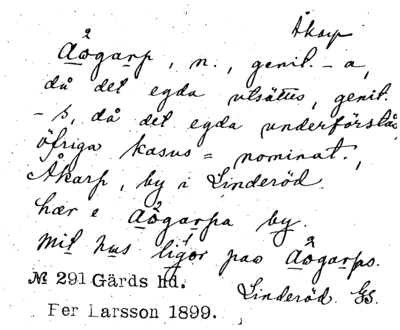 Åkarp
åogarp, n., genit. -a,
då det egda utsättes, genit.
-s, då det egda underförstås,
öfriga kasus = nominat.,
Åkarp, by i Linderöd.
hær e åogarpa by.
mit hus ligor pao åogarps.
№ 291 Gärds hd. Linderöd. Gs.
Per Larsson 1899.